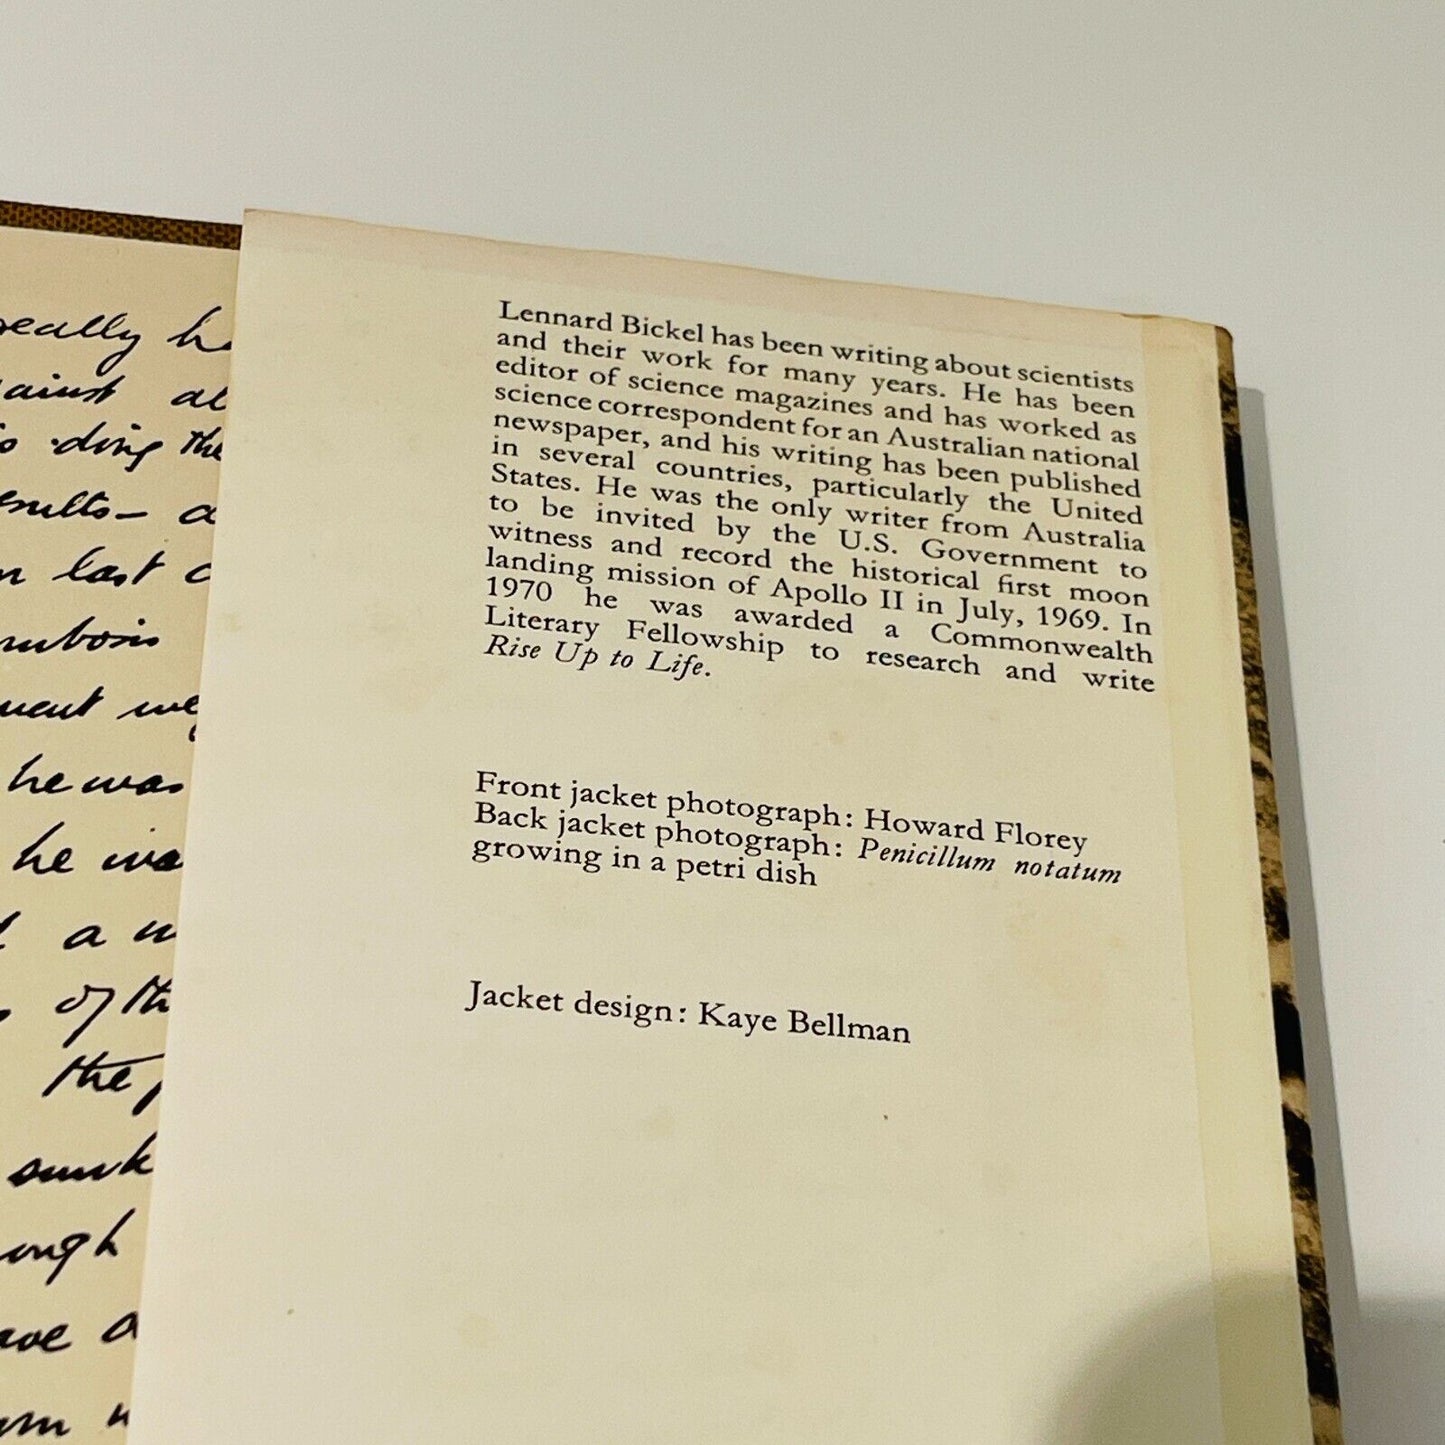 eally h
ainst al
ding the
esults— a
n last c
mbosis
ment we
he was
he wa
a w
of th
the
ough
ave a
Lennard Bickel has been writing about scientists
and their work for many years. He has been
editor of science magazines and has worked as
science correspondent for an Australian national
newspaper, and his writing has been published
in several countries, particularly the United
States. He was the only writer from Australia
to be invited by the U.S. Government to
witness and record the historical first moon
landing mission of Apollo II in July, 1969. In
1970 he was awarded a Commonwealth
Literary Fellowship to research and write
Rise Up to Life.
Front jacket photograph: Howard Florey
Back jacket photograph: Penicillum notatum
growing in a petri dish
Jacket design: Kaye Bellman